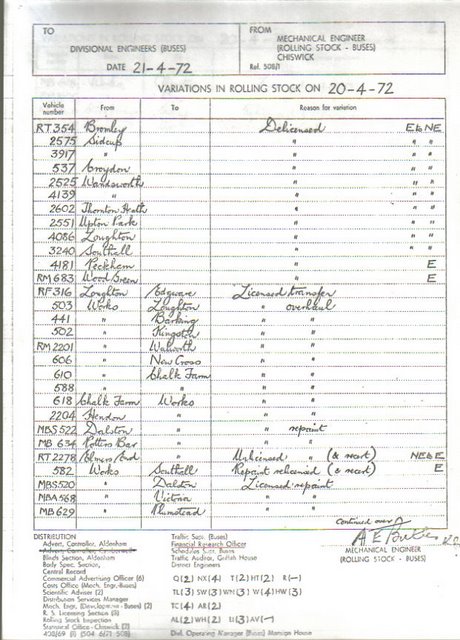 TO
FROM
DIVISIONAL ENGINEERS (BUSES)
MECHANICAL ENGINEER
(ROLLING STOCK - BUSES)
CHISWICK
DATE 21-4-72
Ref. 508/1
VARIATIONS IN ROLLING STOCK ON 20-4-72
Vehicle number From To Reason for variation
RT 354 Bromley Delicensed E to NE
2575 Sidcup " " "
3917 " " " "
537 Croydon " " "
2525 Wandsworth " " "
4139 " " " "
2602 Thornton Heath " " "
2551 Upton Park " " "
4086 Loughton " " "
3240 Southall " " "
4181 Peckham " E
RM 683 Wood Green " E
RF 316 Loughton Edgware Licensed transfer
503 Works Loughton " overhaul
441 " Barking " "
502 " Kingston " "
RM 2201 " Walworth " "
606 " New Cross " "
610 " Chalk Farm " "
588 " " " "
618 Chalk Farm Works " "
2204 Hendon " " "
MBS 522 Dalston " " repaint
MB 634 Potters Bar " " "
RT 2278 Elmers End " Unlicensed " (& recert) NE to E
582 Works Southall Repaint relicensed (& recert) E
MBS 520 " Dalston Licensed repaint
MBA 568 " Victoria " "
MB 629 " Plumstead " "
continued over
MECHANICAL ENGINEER
(ROLLING STOCK - BUSES)
DISTRIBUTION
Advert. Controller, Aldenham
Blinds Section, Aldenham
Body Spec. Section,
Central Record
Commercial Advertising Officer (6)
Costs Office (3)
Scientific Adviser (2)
Distribution Services Manager
Mech. Engr. (Development - Buses) (2)
R. S. Licensing Section (3)
Rolling Stock Inspection
Statistical Office - Chiswick (2)
Traffic Supt. (Buses)
Financial Research Officer
Schedules Supt. Buses
Traffic Auditor, Griffith House
District Engineers
Q(2) NX(4) T(2) HT(2) R(-)
TL(3) SW(3) WN(3) W(4) HW(3)
TC(4) AR(2)
AL(2) WH(2) U(3) AV(-)
Divl. Operating Manager (Buses) Mansion House